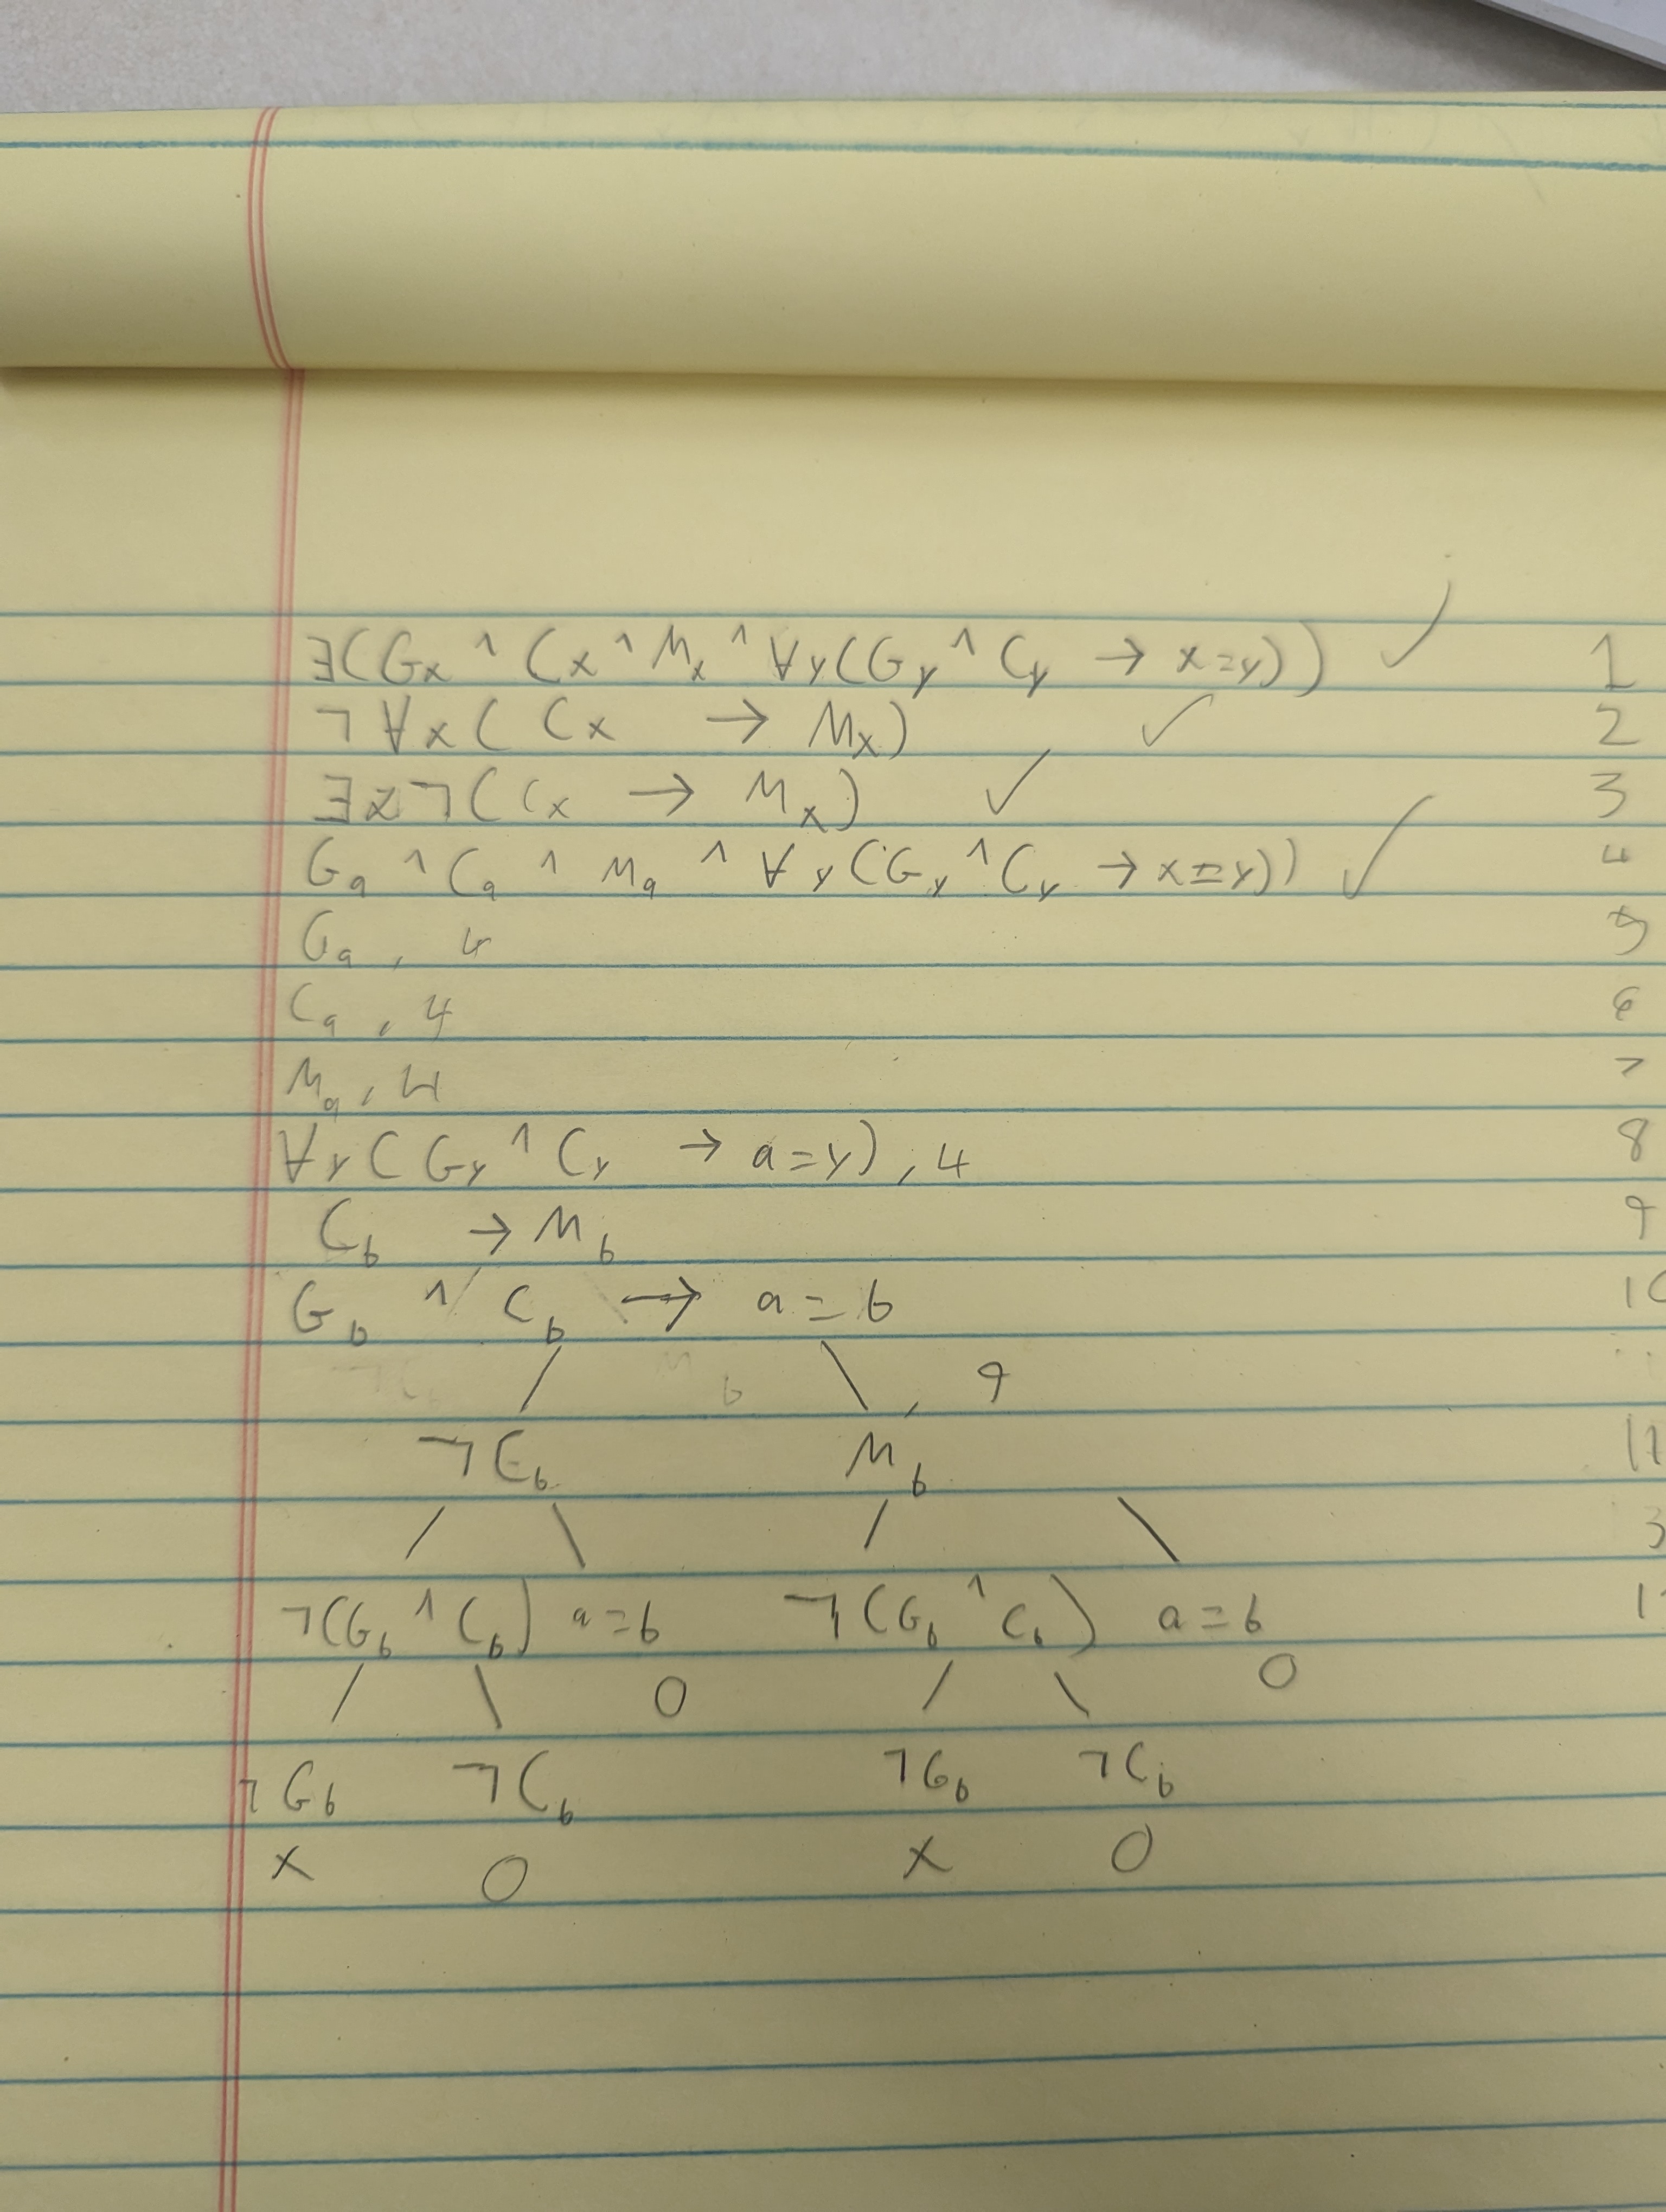 ∃(Gx ∧ Cx ∧ Mx ∧ ∀y(Gy ∧ Cy → x=y)) ✓ 1
¬∀x(Cx → Mx) ✓ 2
∃x¬(Cx → Mx) ✓ 3
Ga ∧ Ca ∧ Ma ∧ ∀y(Gy ∧ Cy → x=y)) ✓ 4
Ga, 4 5
Ca, 4 6
Ma, 4 7
∀y(Gy ∧ Cy → a=y), 4 8
Cb → Mb 9
Gb ∧ Cb → a=b
/ \, 9
¬Cb Mb
/ \ / \ 3
¬(Gb ∧ Cb) a=b ¬(Gb ∧ Cb) a=b
/ \ O / \ O
¬Gb ¬Cb ¬Gb ¬Cb
X O X O